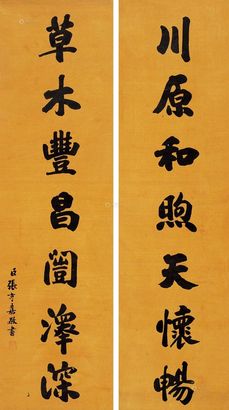 川原和煦天懷暢
草木豐昌闓澤深
臣張亨嘉敬書